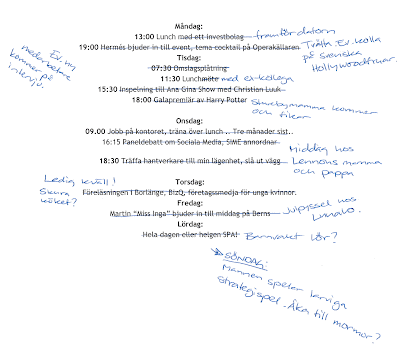 Måndag:
13:00 Lunch med ett investbolag framför datorn
19:00 Hermés bjuder in till event, tema cocktail på Operakällaren Träna. Ev. kolla på svenska Hollywoodfruar.
Ev. ny medarbetare kommer på intervju.
Tisdag:
07:30 Omslagsplåtning
11:30 Lunchmöte med ex-kollega
15:30 Inspelning till Ana Gina Show med Christian Luuk
18:00 Galapremiär av Harry Potter Smeknamnsmamma kommer och fikar
Onsdag:
09.00 Jobb på kontoret, träna över lunch .. Tre månader sist..
16:15 Paneldebatt om Sociala Media, SIME annordnar
Middag hos Lennons mamma och pappa
18:30 Träffa hantverkare till min lägenhet, slå ut vägg
Ledig kväll! Skura köket?
Torsdag:
Föreläsningen i Borlänge, BizQ, företagsmedja för unga kvinnor.
Fredag:
Martin "Miss Inga" bjuder in till middag på Berns Julpyssel hos
Lördag:
Hela dagen eller helgen SPA! Barnvakt lör?
SÖNDAG:
Mannen spelar larviga strategispel. Åka till mormor?